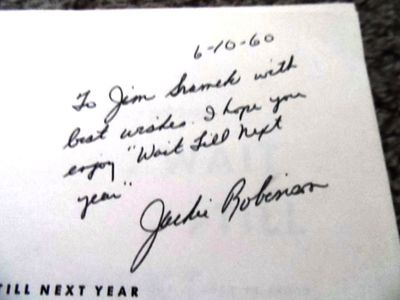 6-10-60
To Jim Sramek with
best wishes. I hope you
enjoy "Wait Till Next
year"
Jackie Robinson
WAIT
TILL
TILL NEXT YEAR